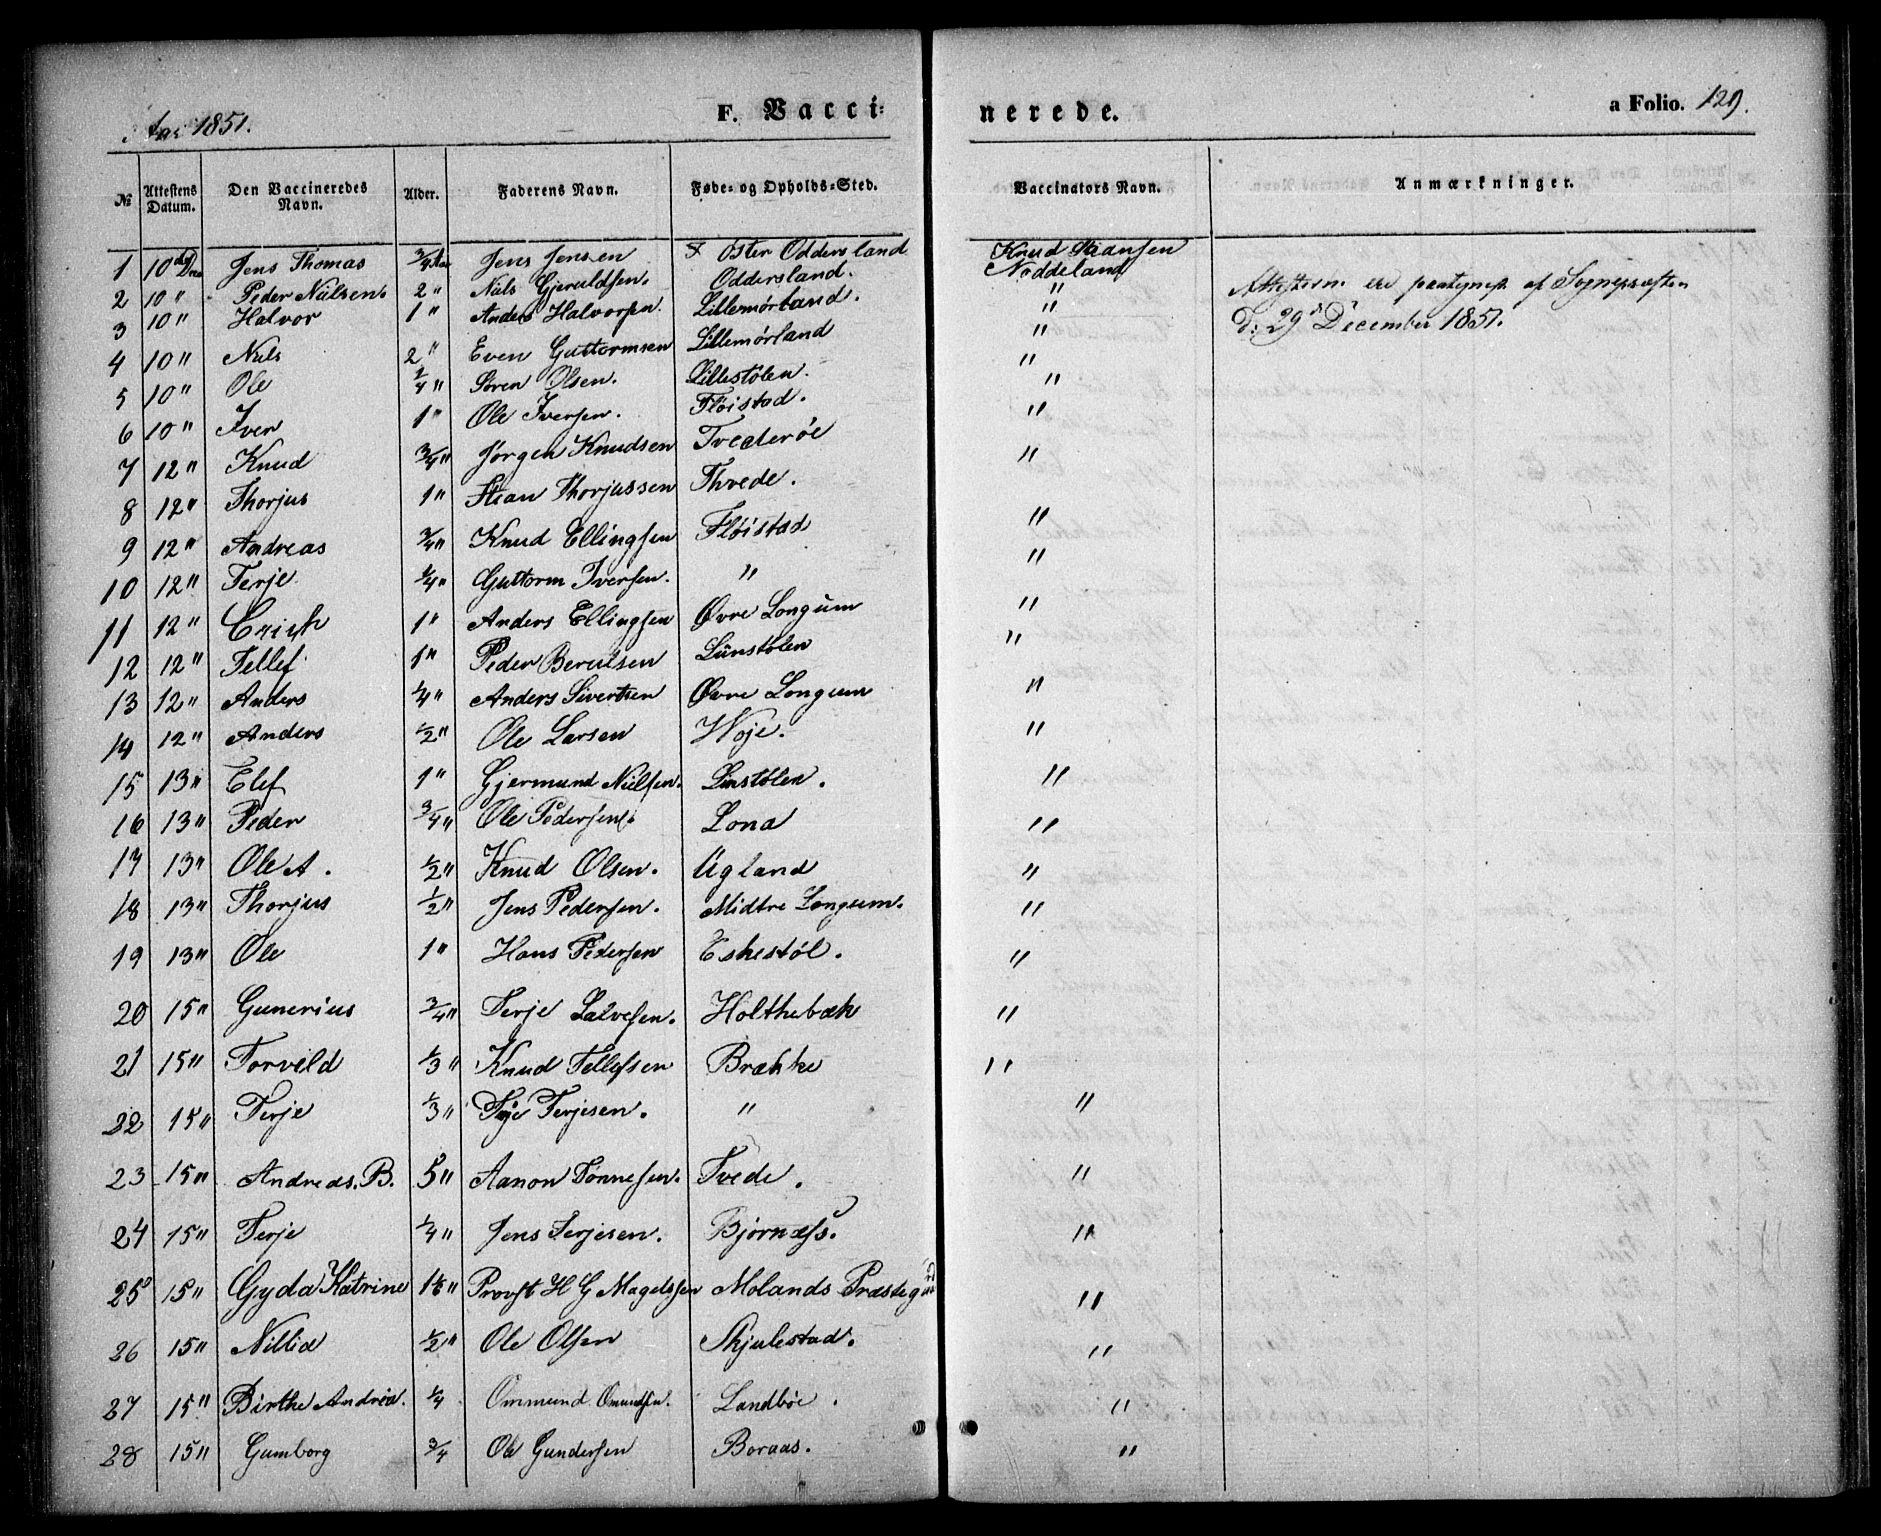 Aar 1851.
F. Vacci-
nerede.
a Folio. 129.
№ Attestens Datum. Den Vaccineredes Navn. Alder. Faderens Navn. Føde- og Opholds-Sted. Vaccinators Navn. Anmærkninger.
1 10de Dec Jens Thomas 3/4 Aar Jens Jensen Øster Oddersland Knud Staansen Noddeland
2 10 " Peder Nielsen. 2 " Niels Gjeruldsen. Oddersland. " Attesterne ere paategnet af Sognepræsten
3 10 " Halvor 1 " Anders Halvorsen. Lillemørland. " D: 29d December 1851.
4 10 " Niels 2 " Even Guttormsen Lillemørland "
5 10 " Ole 1/4 " Søren Olsen. Lillestølen. "
6 10 " Iver 1 " Ole Iversen. Fløistad. "
7 12 " Knud 3/4 " Jørgen Knudsen Tvederøe "
8 12 " Thorjus 1 " Stian Thorjussen Thvede. "
9 12 " Andreas 3/4 " Knud Ellingsen Fløistad "
10 12 " Terje 1/4 " Guttorm Iversen. " "
11 12 " Erich 1 " Anders Ellingsen Øvre Longum "
12 12 " Tellef 1 " Peder Berulsen Linstølen
13 12 " Anders 1/4 " Anders Sivertsen Øvre Longum "
14 12 " Anders 1/2 " Ole Larsen Woje. "
15 13 " Elef 1 " Gjermund Nielsen. Linstølen. "
16 13 " Peder 3/4 " Ole Pedersen. Lona "
17 13 " Ole A. 1/2 " Knud Olsen. Ugland "
18 13 " Thorjus 1/2 " Jens Pedersen. Midtre Longum. "
19 13 " Ole 1 " Hans Pedersen Eskestøl. "
20 15 " Gunerius 3/4 " Terje Salvesen. Holthebæk "
21 15 " Torvild 1/3 " Knud Tellefsen Brække "
22 15 " Terje 1/3 " Terjesen. " "
23 15 " Andreas. B. 5 " Aanon Tønnesen. Tvede. "
24 15 " Terje 1/4 " Jens Terjesen. Bjørnæss. "
25 15 " Gyda Katrine " Provst H G Magelssen Molands Præstegaard "
26 15 " Nillia 1/2 " Ole Olsen Skjulestad. "
27 15 " Birthe Andrea. 1/4 Ommund Omundsen. Landbøe. "
28 15 " Gumborg 3/4 Ole Gundersen Boraas. "